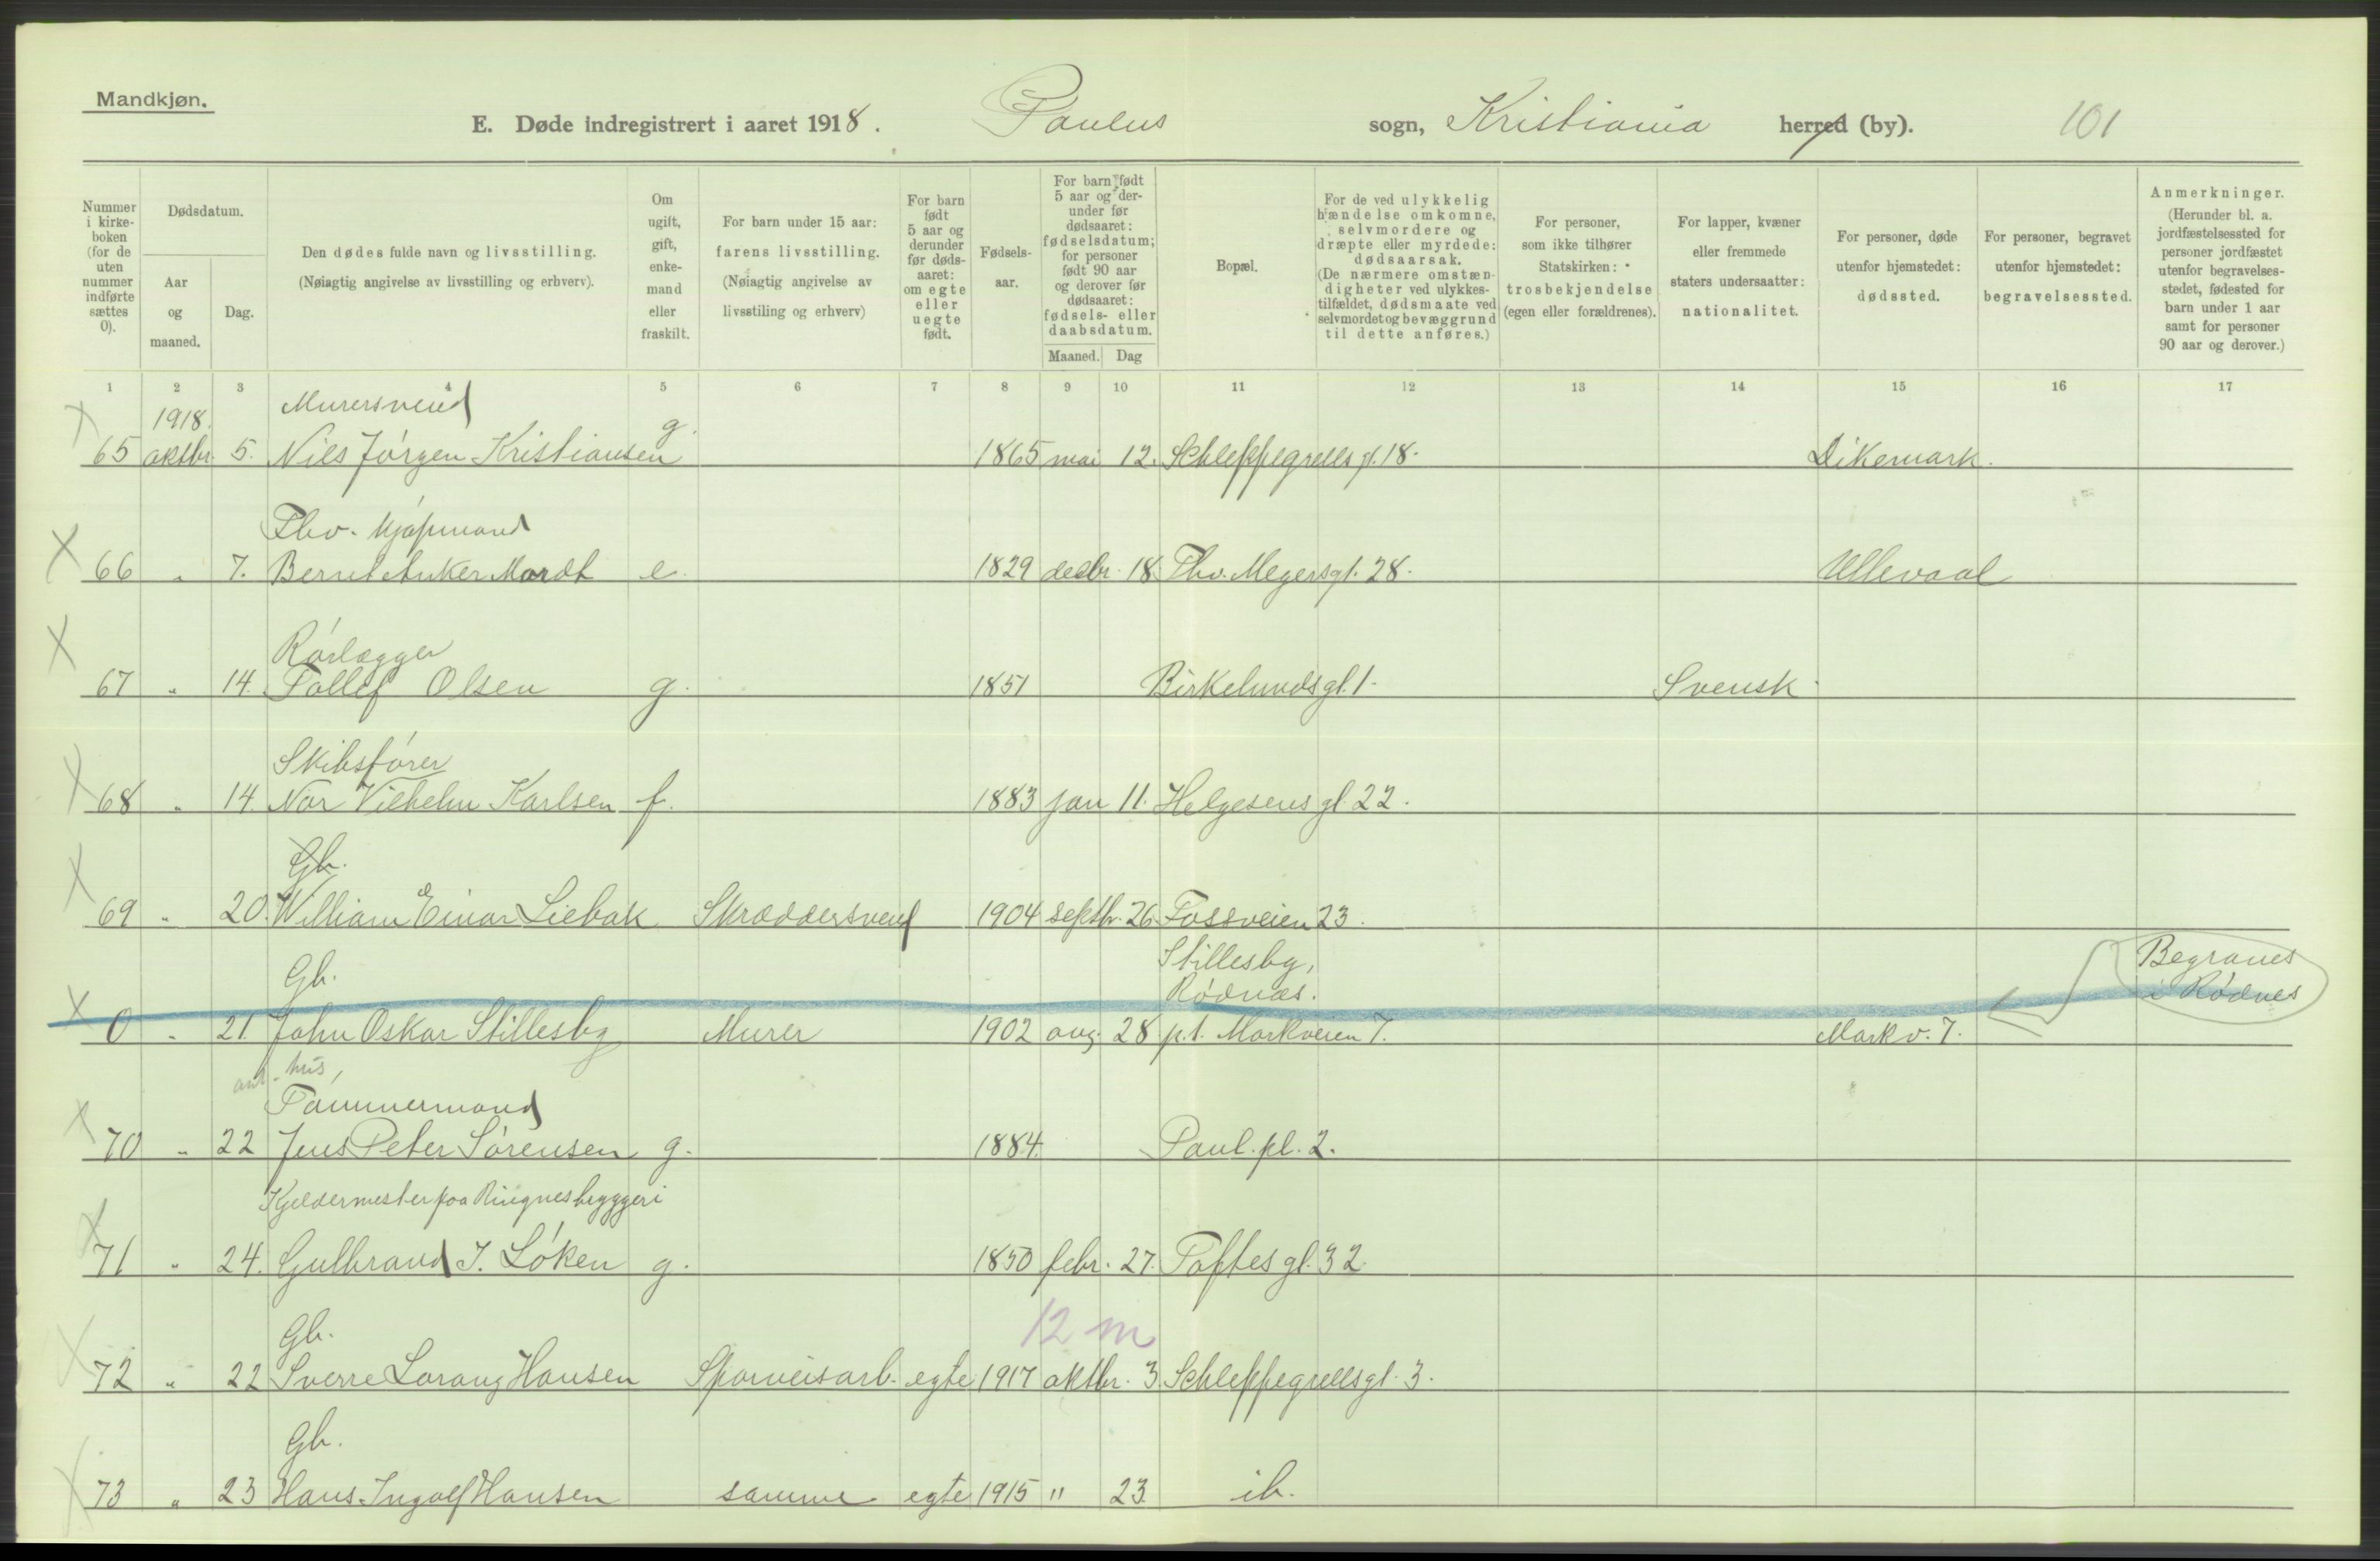 Mandkjøn.
E. Døde indregistrert i aaret 1918. Paulus sogn, Kristiania herred (by). 101
Nummer i kirke-boken (for de uten nummer indførte sættes 0).
Dødsdatum.
Aar og maaned.
Dag.
Den dødes fulde navn og livsstilling. (Nøiagtig angivelse av livsstilling og erhverv).
Om ugift, gift, enke-mand eller fraskilt.
For barn under 15 aar: farens livsstilling. (Nøiagtig angivelse av livsstiling og erhverv)
For barn født 5 aar og derunder før døds-aaret: om egte eller uegte født.
Fødsels-aar.
For barn født 5 aar og der-under før dødsaaret: fødselsdatum; for personer født 90 aar og derover før dødsaaret: fødsels- eller daabsdatum.
Maaned. Dag
Bopæl.
For de ved ulykkelig hændelse omkomne, selvmordere og dræpte eller myrdede: dødsaarsak. (De nærmere omstæn-digheter ved ulykkes-tilfældet, dødsmaate ved selvmordet og bevæggrund til dette anføres.)
For personer, som ikke tilhører Statskirken: trosbekjendelse (egen eller forældrenes).
For lapper, kvæner eller fremmede staters undersaatter: nationalitet.
For personer, døde utenfor hjemstedet: dødssted.
For personer, begravet utenfor hjemstedet: begravelsessted.
Anmerkninger. (Herunder bl. a. jordfæstelsessted for personer jordfæstet utenfor begravelses-stedet, fødested for barn under 1 aar samt for personer 90 aar og derover.)
1 2 3 4 5 6 7 8 9 10 11 12 13 14 15 16 17
1918. Murersvend
65 oktbr. 5. Niels Jörgen Kristiansen g. 1865 mai 12. Schleppegrells gt. 18. Dikemark.
Fhv. Kjøpmand
66 " 7. Bernt Anker Mordt e. 1829 decbr. 18 Thv. Meyersgt. 28. Ullevaal
Rørlægger
67 " 14. Tollef Olsen g. 1851 Birkelundsgt. 1. Svensk
Skibsfører
68 " 14. Nor Vilhelm Karlsen f. 1883 jan 11. Helgesens gt. 22.
Gb.
69 " 20. William Einar Liebak Skræddersvend 1904 septbr. 26 Fossveien 23.
Gb. Stillesby, Rødnes. Begraves i Rødnes
0 " 21. John Oskar Stillesby Murer 1902 aug. 28 p.t. Markveien 7. Markv. 7.
hus,
Tømmermand
70 " 22 Jens Peter Sörensen g. 1884. Paul. pl. 2.
Kjeldermester paa Ringnes bryggeri
71 " 24. Gulbrand J. Löken g. 1850 febr. 27. Toftes gt. 32.
Gb. 12 m
72 " 22 Sverre Lorang Hansen Sporveisarb. egte 1917 oktbr. 3. Schleppegrellsgt. 3.
Gb.
73 " 23 Hans Ingolf Hansen samme egte 1915 " 23. ib.